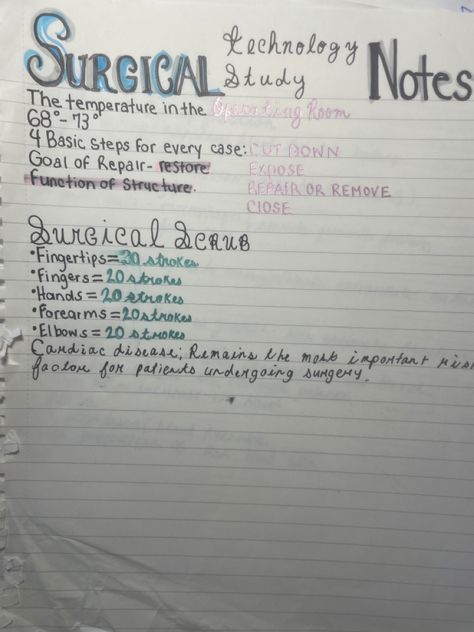 SURGICAL Technology Study Notes
The temperature in the Operating Room
68°-73°
4 Basic steps for every case: CUT DOWN
Goal of Repair- restore EXPOSE
function of structure. REPAIR OR REMOVE
CLOSE
Surgical Scrub
•Fingertips=30 strokes
•Fingers=20 strokes
•Hands=20 strokes
•Forearms=20 strokes
•Elbows=20 strokes
Cardiac disease; Remains the most important risk
factor for patients undergoing surgery.